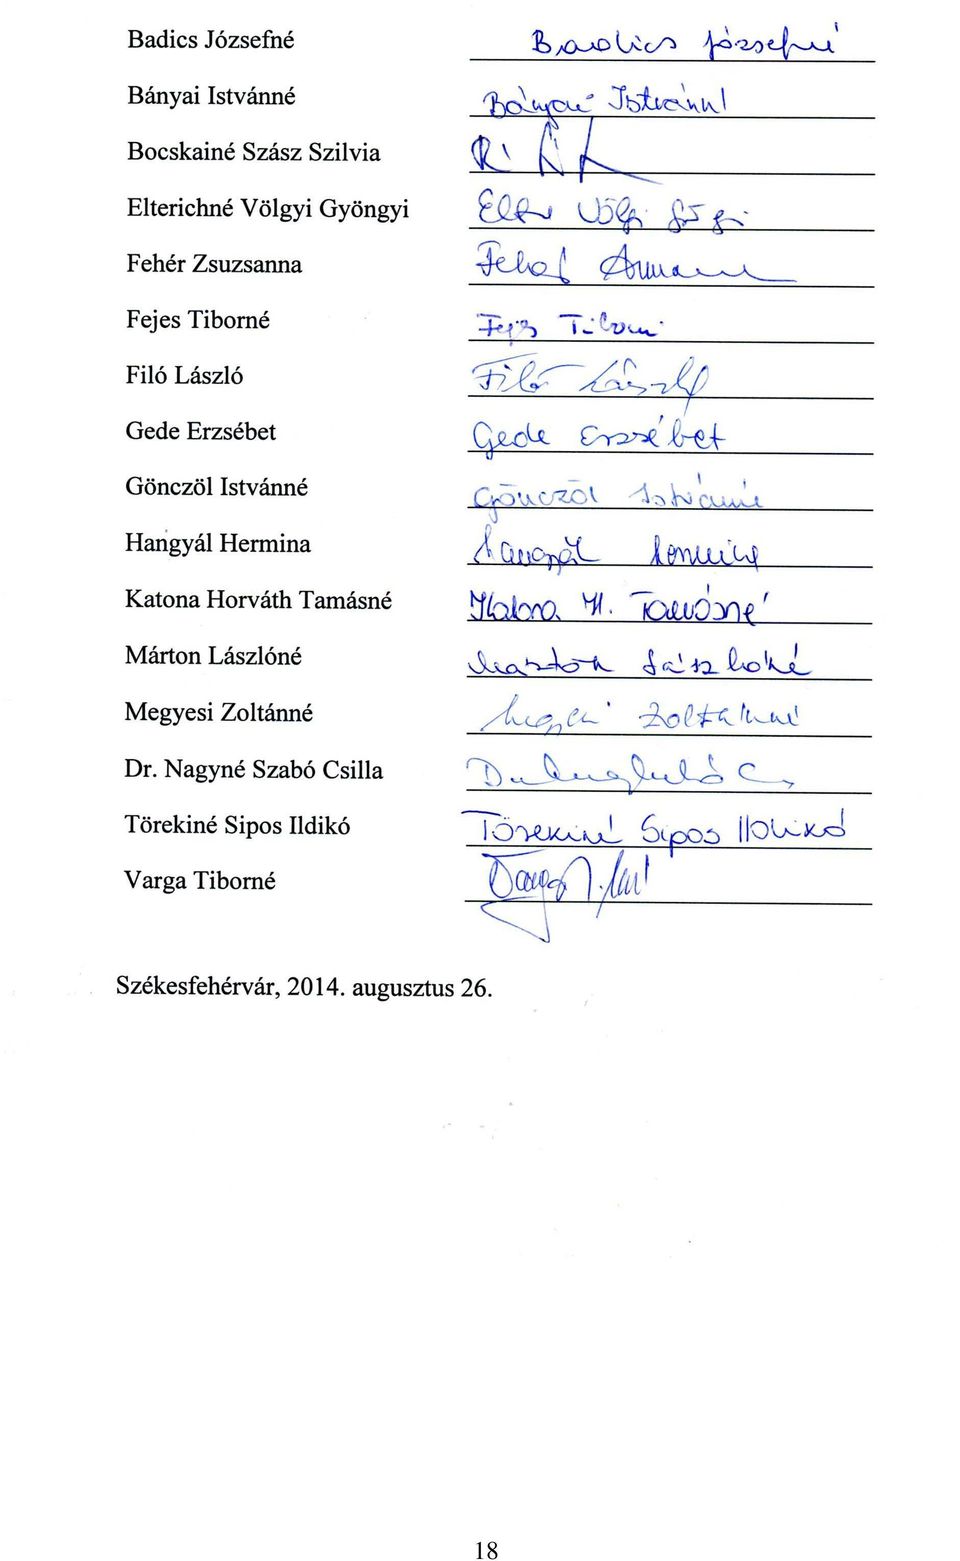 Badics Józsefné Badics Józsefné
Bányai Istvánné Bányai Istvánné
Bocskainé Szász Szilvia
Elterichné Völgyi Gyöngyi
Fehér Zsuzsanna Fehér
Fejes Tiborné Fejes Tiborné
Filó László Filó László
Gede Erzsébet Gede Erzsébet
Gönczöl Istvánné Gönczöl Istvánné
Hangyál Hermina Hangyál Hermina
Katona Horváth Tamásné Katona H. Tamásné
Márton Lászlóné Márton Lászlóné
Megyesi Zoltánné Megyesi Zoltánné
Dr. Nagyné Szabó Csilla
Törekiné Sipos Ildikó Törekiné Sipos Ildikó
Varga Tiborné Varga
Székesfehérvár, 2014. augusztus 26.
18